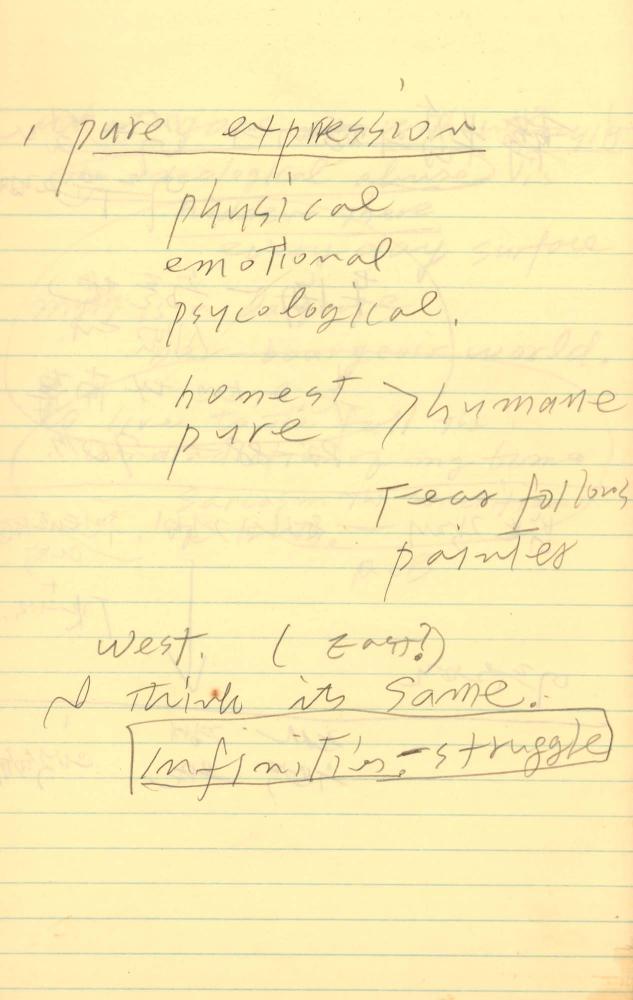 pure expression
physical
emotional
psycological.
honest
pure > humane
Fear follows
painter
West. ( East?)
I think its same.
infinities-struggle